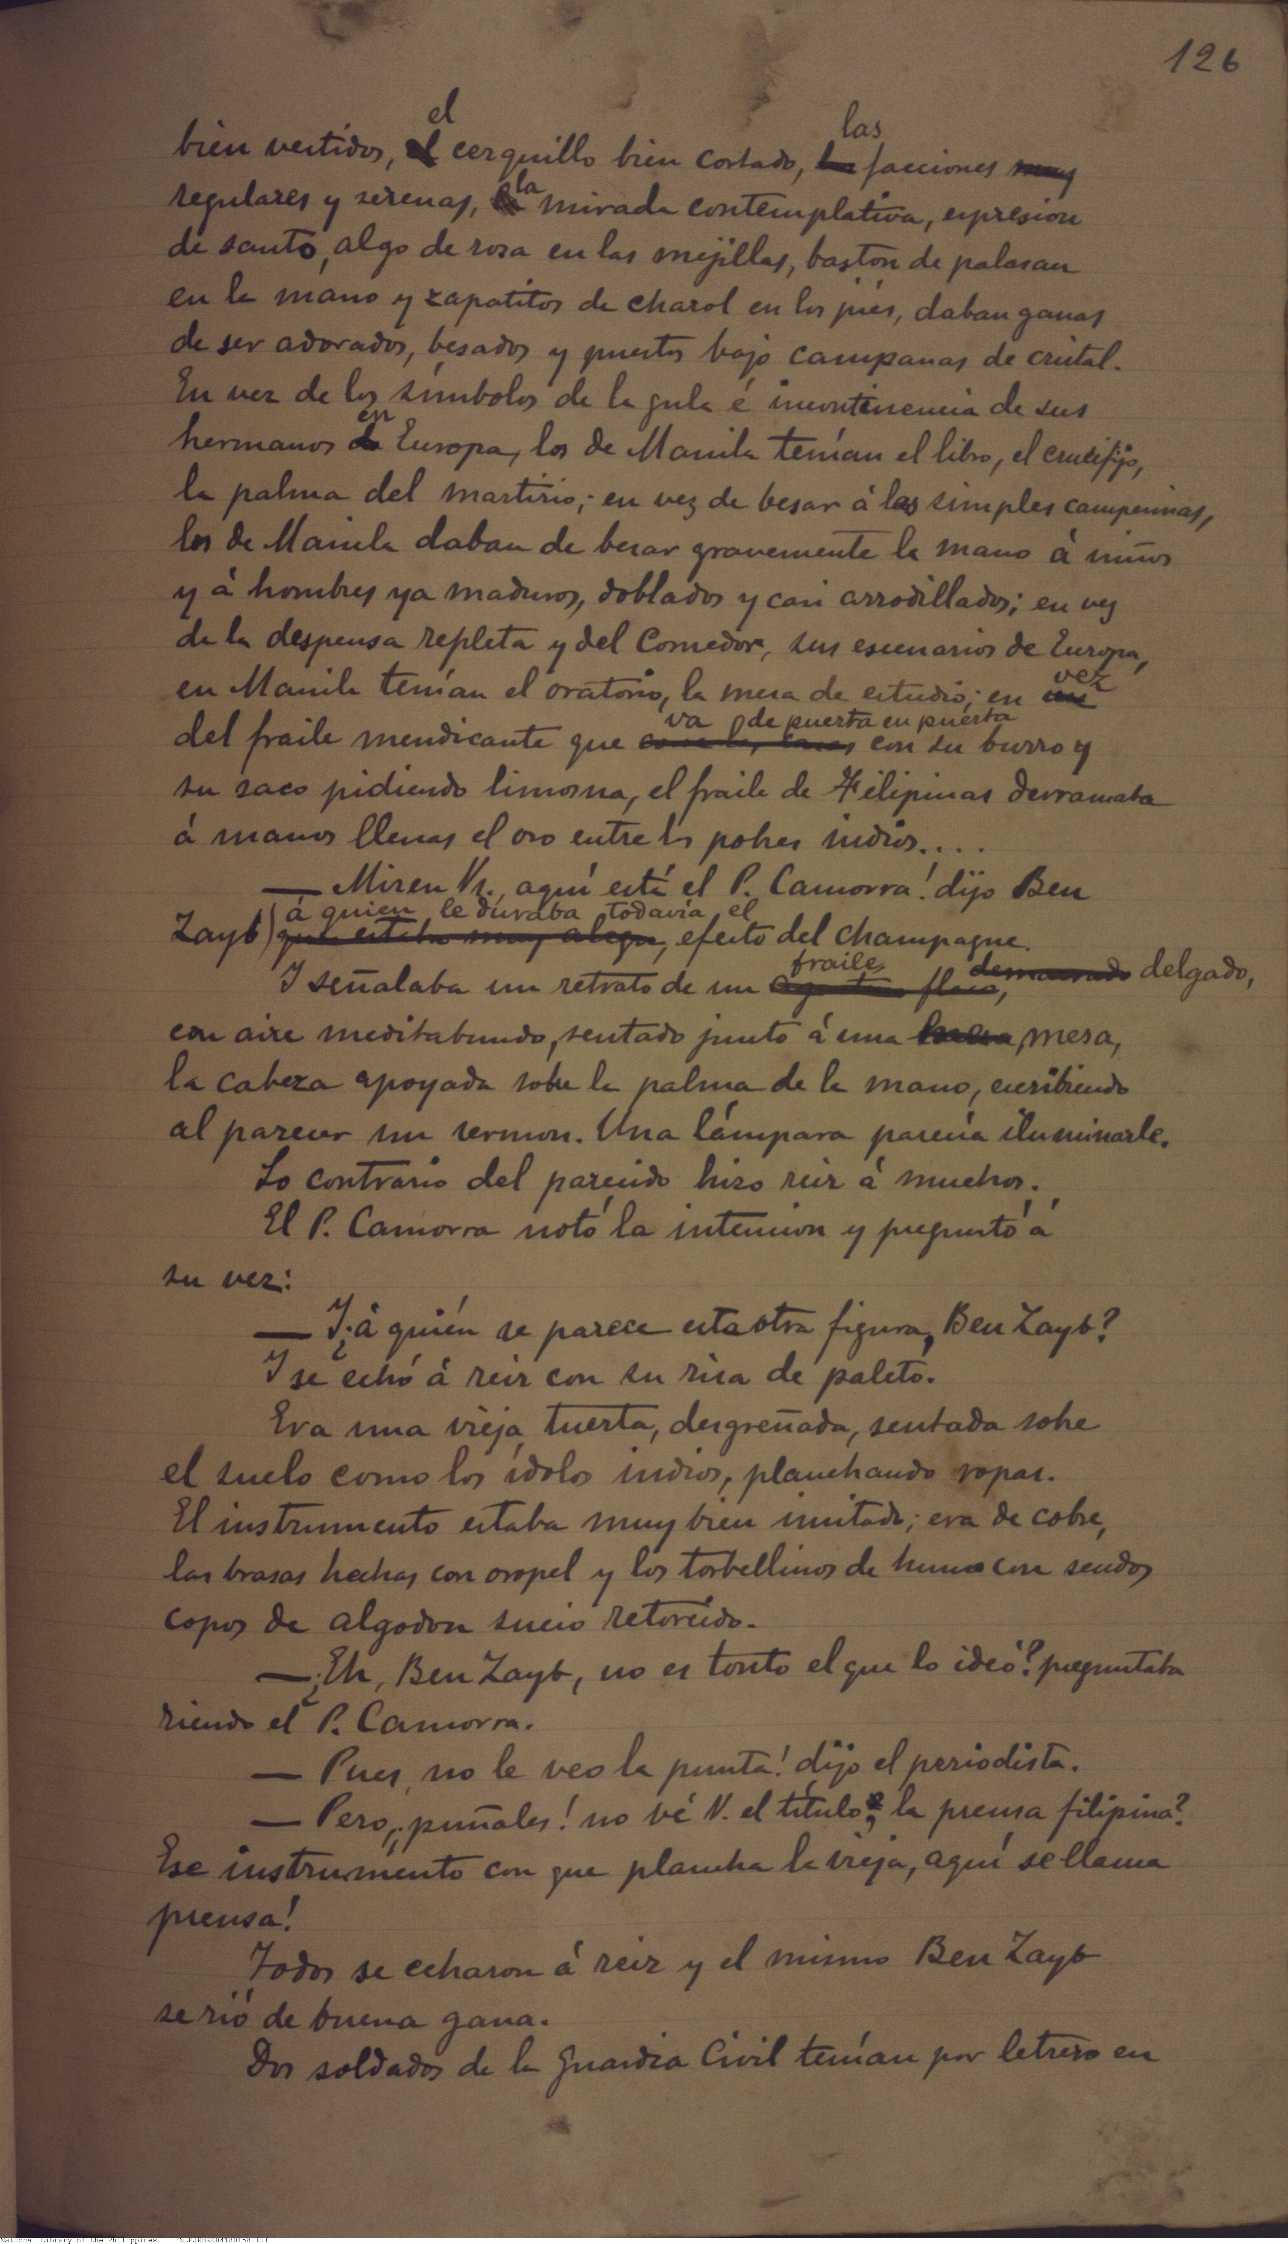 126
bien vestidos, el cerquillo bien cortado, las facciones muy
regulares y serenas, la mirada contemplativa, expresion
de santo, algo de rosa en las mejillas, baston de palasan
en la mano y zapatitos de charol en los piés, daban ganas
de ser adorados, besados y puestos bajo campanas de cristal.
En vez de los símbolos de la gula é incontinencia de sus
hermanos en Europa, los de Manila tenían el libro, el crucifijo,
la palma del martirio; en vez de besar á las simples campesinas,
los de Manila daban de besar gravemente la mano á niños
y á hombres ya maduros, doblados y casi arrodillados; en vez
de la despensa repleta y del comedor, sus escenarios de Europa,
en Manila tenían el oratorio, la mesa de estudio; en vez
del fraile mendicante que va de puerta en puerta con su burro y
su saco pidiendo limosna, el fraile de Filipinas derramaba
á manos llenas el oro entre los pobres indios....
— Miren Vs. aquí está el P. Camorra! dijo Ben
Zayb á quien le duraba todavía el efecto del champagne.
Y señalaba un retrato de un fraile flaco, demacrado delgado,
con aire meditabundo, sentado junto á una mesa,
la cabeza apoyada sobre la palma de la mano, escribiendo
al parecer un sermon. Una lámpara parecía iluminarle.
Lo contrario del parecido hizo reir á muchos.
El P. Camorra notó la intencion y preguntó á
su vez:
— Y ¿á quién se parece esta otra figura, Ben Zayb?
Y se echó á reir con su risa de paleto.
Era una vieja tuerta, desgreñada, sentada sobre
el suelo como los ídolos indios, planchando ropas.
El instrumento estaba muy bien imitado; era de cobre,
las brasas hechas con oropel y los torbellinos de humo con sendos
copos de algodon sucio retorcido.
— ¿Eh, Ben Zayb, no es tonto el que lo ideó? preguntaba
riendo el P. Camorra.
— Pues, no le veo la punta! dijo el periodista.
— Pero, ¡puñales! no vé V. el título, la prensa filipina?
Ese instrumento con que plancha la vieja, aquí se llama
prensa!
Todos se echaron á reir y el mismo Ben Zayb
se rió de buena gana.
Dos soldados de la Guardia Civil tenían por letrero en